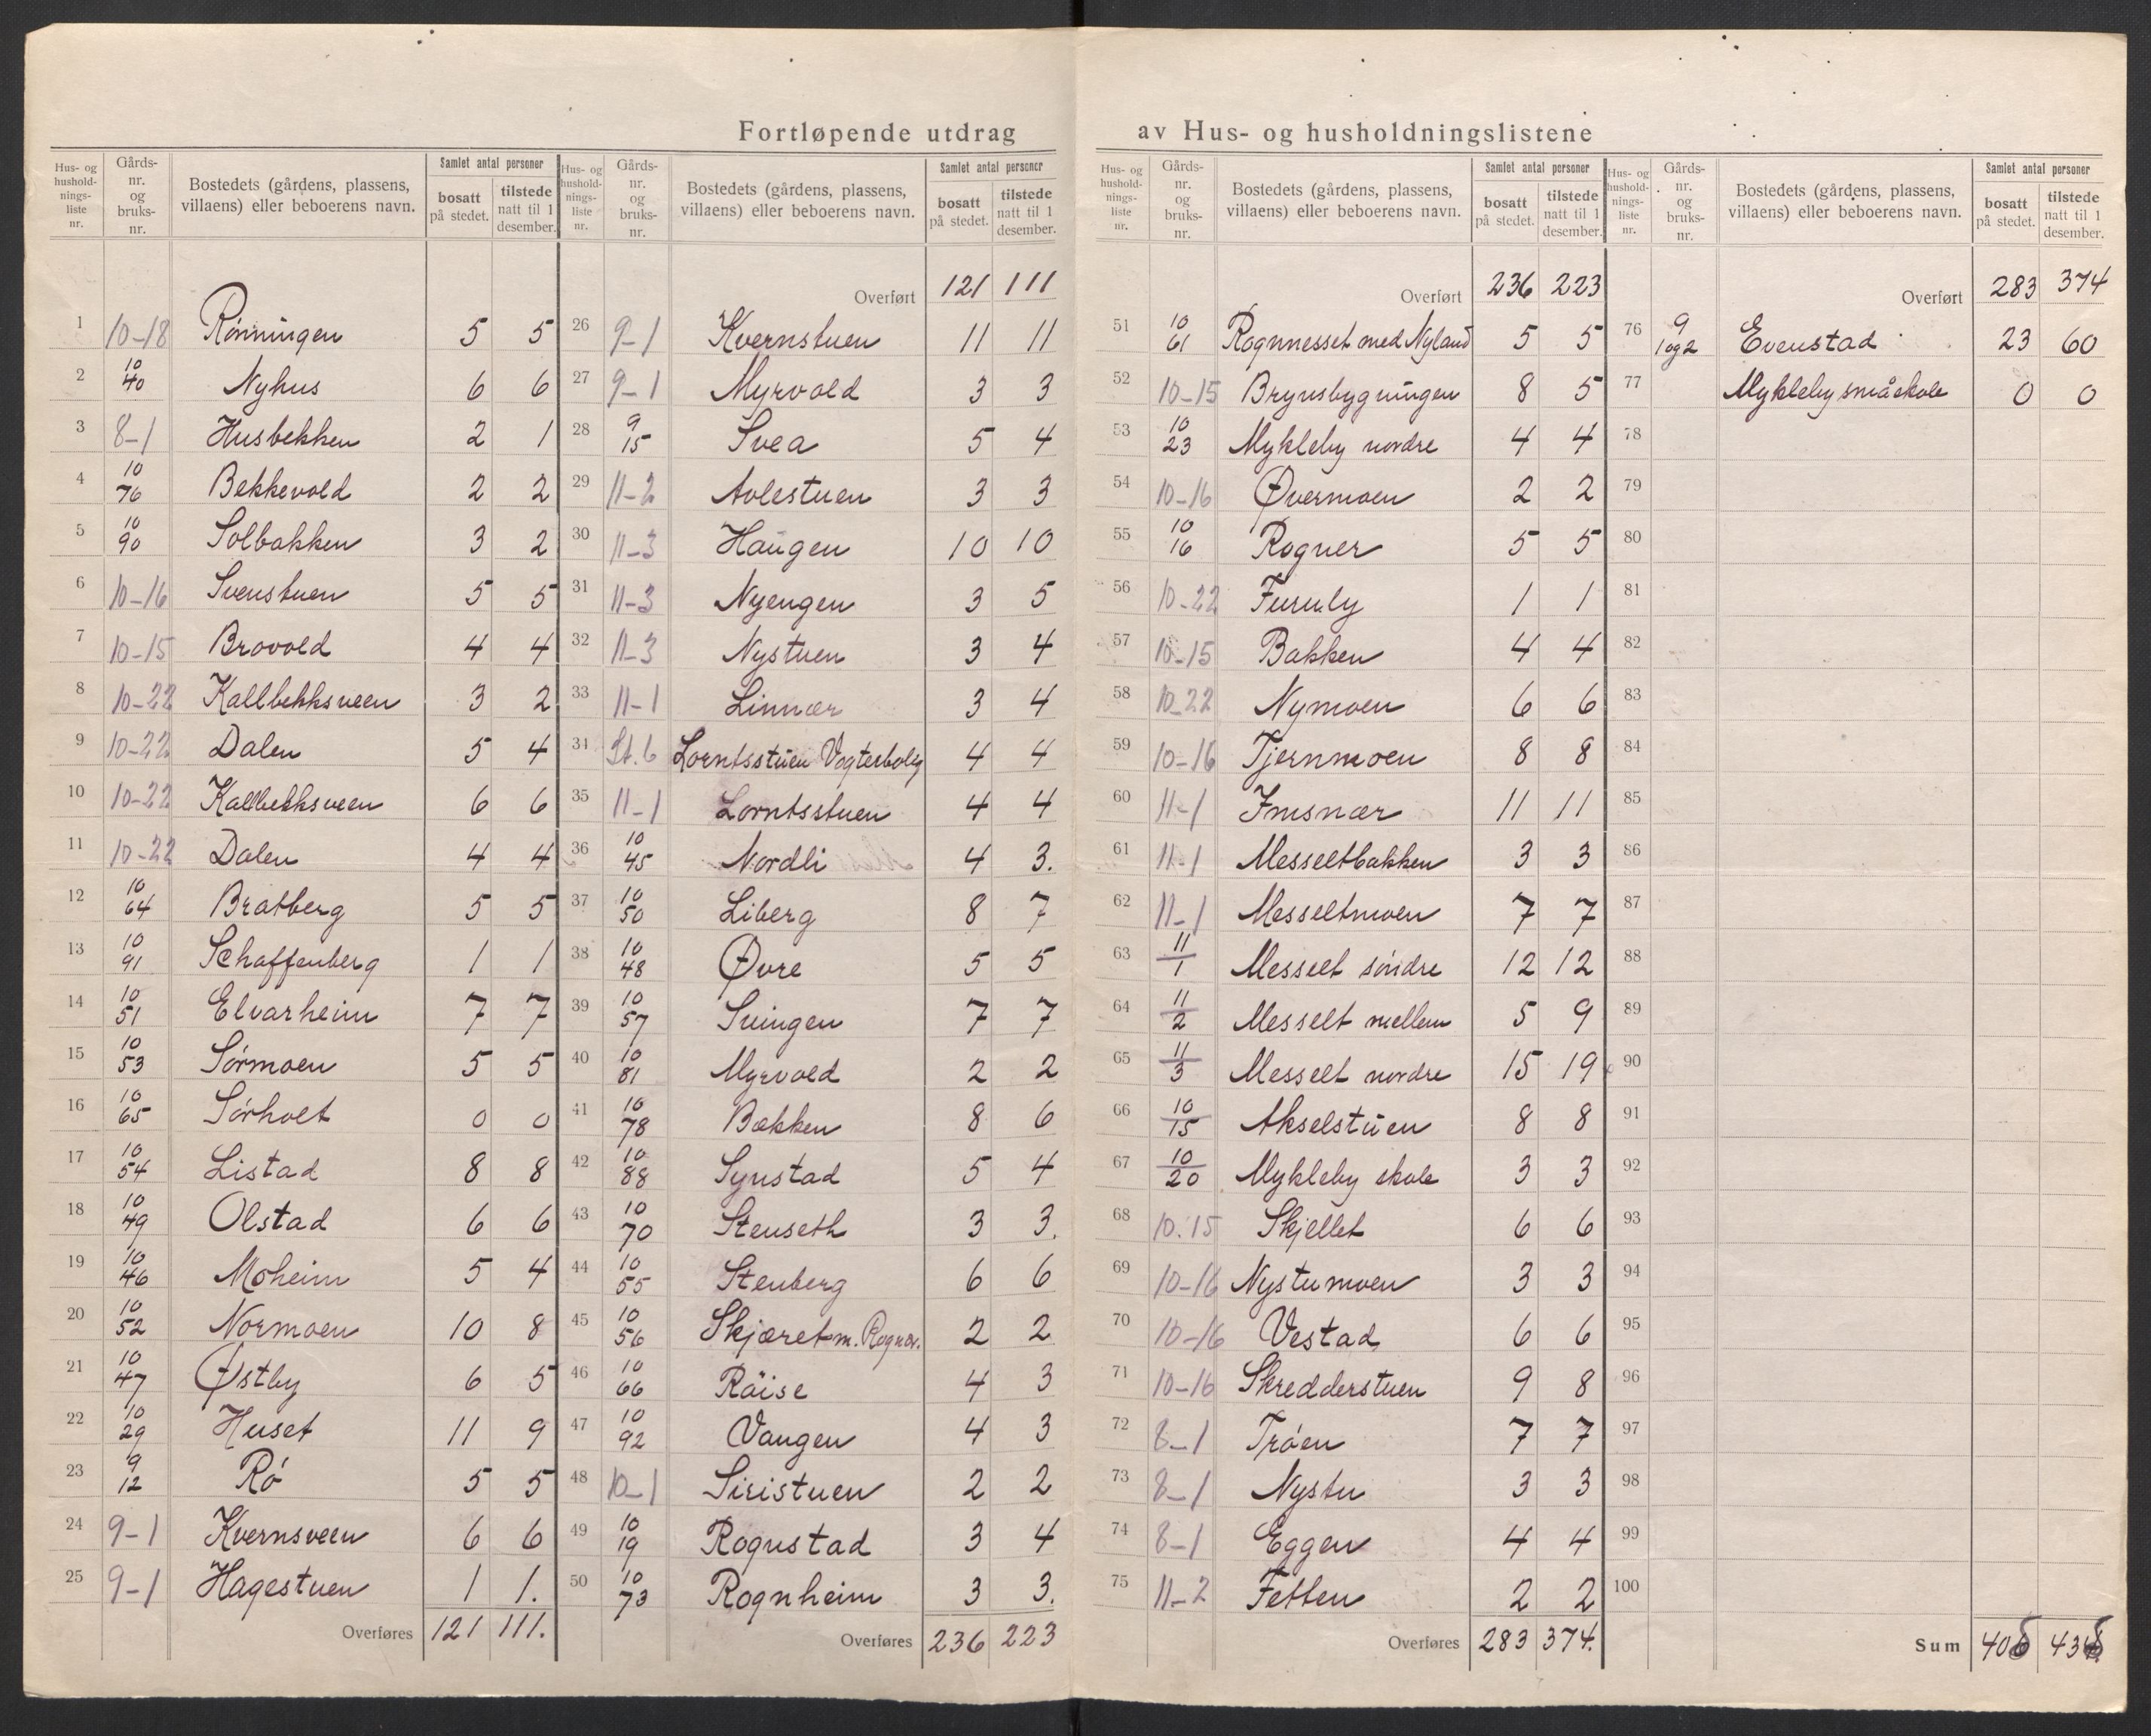 Fortløpende utdrag av Hus- og husholdningslistene
Hus- og hushold-nings-liste nr. | Gårds-nr. og bruks-nr. | Bostedets (gårdens, plassens, villaens) eller beboerens navn. | Samlet antal personer bosatt på stedet. | tilstede natt til 1 desember.
1 10-18 Rønningen 5 5
2 10/40 Nyhus 6 6
3 8-1 Husbekken 2 1
4 10/76 Bekkevold 2 2
5 10/90 Solbakken 3 2
6 10-16 Svenstuen 5 5
7 10-15 Brovold 4 4
8 10-22 Kallbekksveen 3 2
9 10-22 Dalen 5 4
10 10-22 Kallbekksveen 6 6
11 10-22 Dalen 4 4
12 10/64 Bratberg 5 5
13 10/91 Schaffenberg 1 1
14 10/51 Elvarheim 7 7
15 10/53 Sørmoen 5 5
16 10/65 Sørholt 0 0
17 10/54 Listad 8 8
18 10/49 Olstad 6 6
19 10/46 Moheim 5 4
20 10/52 Normoen 10 8
21 10/47 Østby 6 5
22 10/29 Huset 11 9
23 9/12 Rø 5 5
24 9-1 Kvernsveen 6 6
25 9-1 Hagestuen 1 1.
Overføres 121 111.
Hus- og hushold-nings-liste nr. | Gårds-nr. og bruks-nr. | Bostedets (gårdens, plassens, villaens) eller beboerens navn. | Samlet antal personer bosatt på stedet. | tilstede natt til 1 desember.
Overført 121 111
26 9-1 Kvernstuen 11 11
27 9-1 Myrvold 3 3
28 9/15 Svea 5 4
29 11-2 Avlestuen 3 3
30 11-3 Haugen 10 10
31 11-3 Nyengen 3 5
32 11-3 Nystuen 3 4
33 11-1 Linnær 3 4
34 St. 6 Lorntsstuen Vogterbolig 4 4
35 11-1 Lorntsstuen 4 4
36 10/45 Nordli 4 3.
37 10/50 Liberg 8 7
38 10/48 Øvre 5 5
39 10/57 Svingen 7 7
40 10/81 Myrvold 2 2
41 10/78 Bækken 8 6
42 10/88 Synstad 5 4
43 10/70 Stenseth 3 3.
44 10/55 Stenberg 6 6
45 10/56 Skjæret m. Rognør. 2 2
46 10/66 Röise 4 3
47 10/92 Vangen 4 3
48 10-1 Siristuen 2 2
49 10/19 Rognstad 3 4
50 10/73 Rognheim 3 3.
Overføres 236 223
Hus- og hushold-nings-liste nr. | Gårds-nr. og bruks-nr. | Bostedets (gårdens, plassens, villaens) eller beboerens navn. | Samlet antal personer bosatt på stedet. | tilstede natt til 1 desember.
Overført 236 223
51 10/61 Rognnesset med Nyland 5 5
52 10-15 Brynsbygningen 8 5
53 10/23 Mykleby nordre 4 4
54 10-16 Øvermoen 2 2
55 10/16 Rogner 5 5
56 10-22 Furuly 1 1
57 10-15 Bakken 4 4
58 10-22 Nymoen 6 6
59 10-16 Tjernmoen 8 8
60 11-1 Imsnær 11 11
61 11-1 Messeltbakken 3 3
62 11-1 Messeltmoen 7 7
63 11/1 Messelt søndre 12 12
64 11/2 Messelt mellem 5 9
65 11/3 Messelt nordre 15 19
66 10/15 Akselstuen 8 8
67 10/20 Mykleby skole 3 3
68 10.15 Skjellet 6 6
69 10-16 Nystumoen 3 3
70 10-16 Vestad 6 6
71 10-16 Skredderstuen 9 8
72 8-1 Trøen 7 7
73 8-1 Nystu 3 3
74 8-1 Eggen 4 4
75 11-2 Fetten 2 2
Overføres 283 374.
Hus- og hushold-nings-liste nr. | Gårds-nr. og bruks-nr. | Bostedets (gårdens, plassens, villaens) eller beboerens navn. | Samlet antal personer bosatt på stedet. | tilstede natt til 1 desember.
Overført 283 374
76 9/1og2 Evenstad 23 60
77 Mykleby småskole 0 0
78
79
80
81
82
83
84
85
86
87
88
89
90
91
92
93
94
95
96
97
98
99
100
Sum